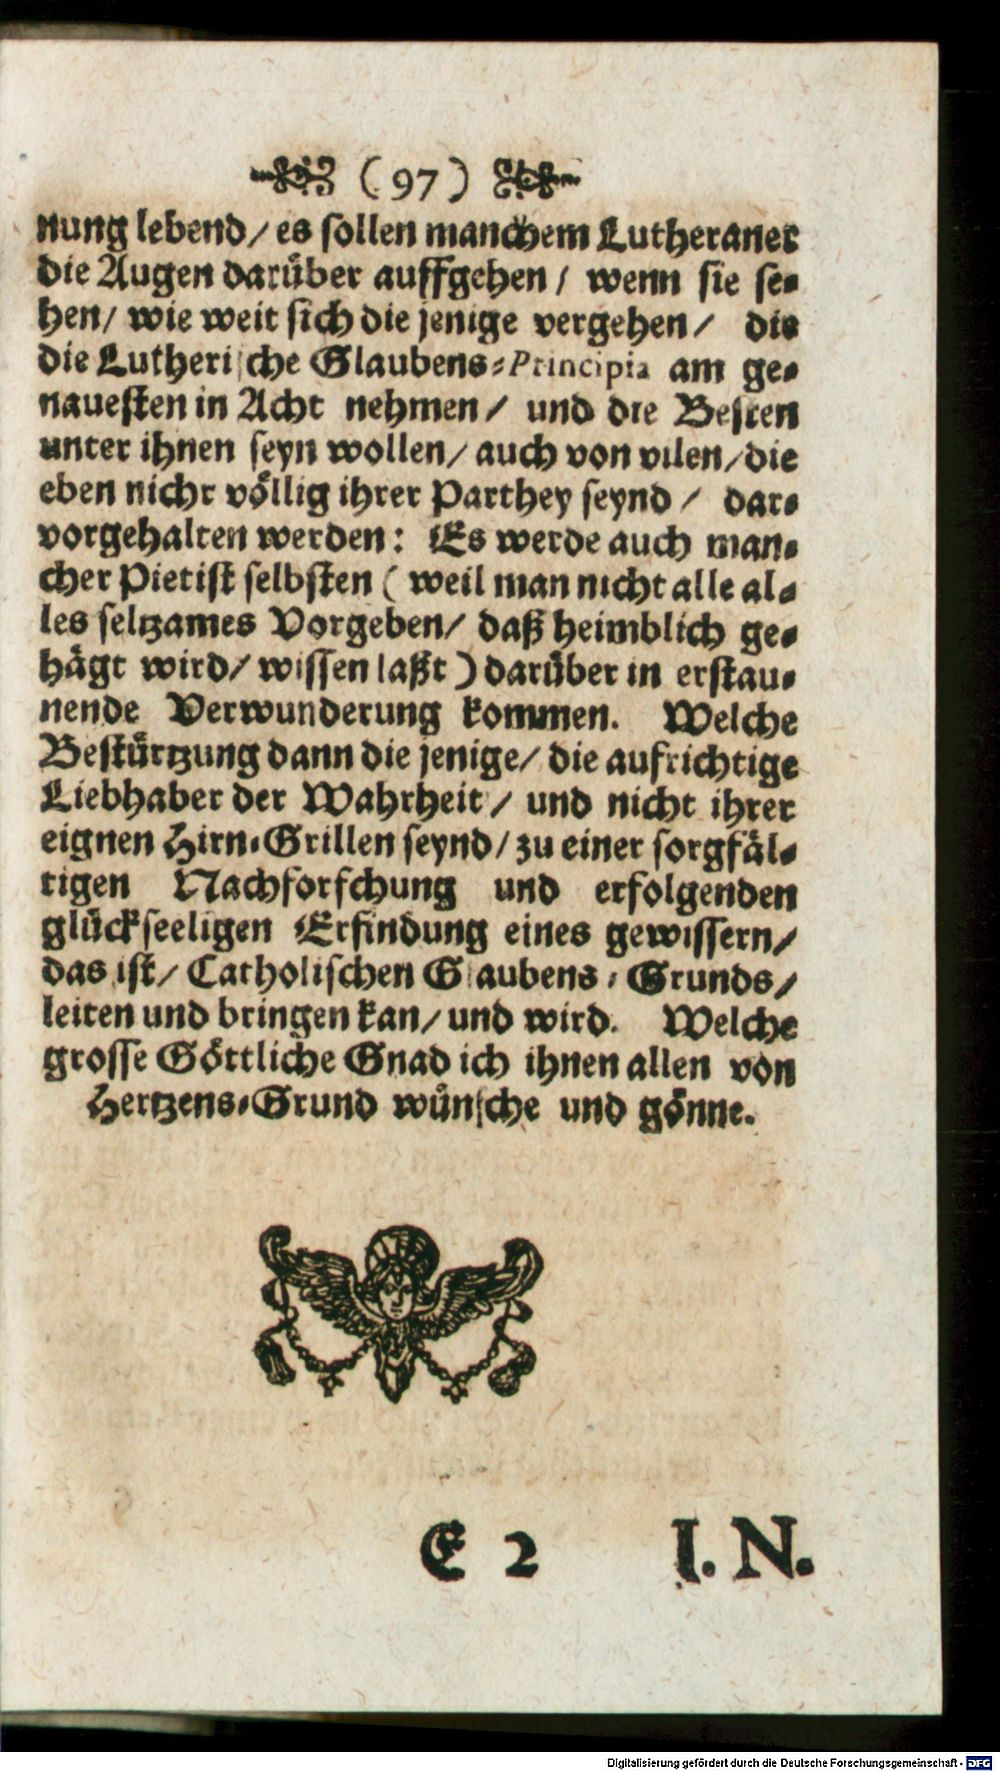 ( 97 )
nung lebend/ es sollen manchem Lutheraner
die Augen darüber auffgehen/ wenn sie se-
hen/ wie weit sich die jenige vergehen/ die
die Lutherische Glaubens-Principia am ge-
nauesten in Acht nehmen/ und die Besten
unter ihnen seyn wollen/ auch von vilen/ die
eben nicht völlig ihrer Parthey seynd/ dar-
vorgehalten werden: Es werde auch man-
cher Pietist selbsten ( weil man nicht alle al-
les seltzames Vorgeben/ daß heimblich ge-
hägt wird/ wissen laßt ) darüber in erstau-
nende Verwunderung kommen. Welche
Bestürtzung dann die jenige/ die aufrichtige
Liebhaber der Wahrheit/ und nicht ihrer
eignen Hirn-Grillen seynd/ zu einer sorgfäl-
tigen Nachforschung und erfolgenden
glückseeligen Erfindung eines gewissern/
das ist/ Catholischen Glaubens-Grunds/
leiten und bringen kan/ und wird. Welche
grosse Göttliche Gnad ich ihnen allen von
Hertzens-Grund wünsche und gönne.
E 2 I. N.
Digitalisierung gefördert durch die Deutsche Forschungsgemeinschaft - DFG